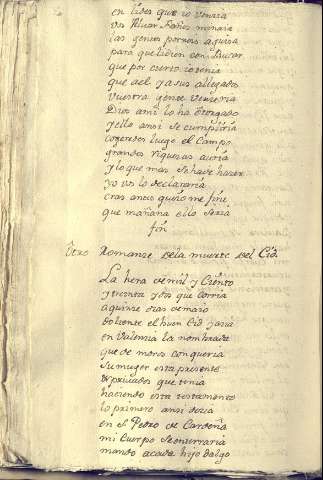 en lides que io vencia
vos Alvar Fañez minaia
las gentes porneis a guisa
para que lidien con Bucar
que por cierto io tenia
que a el y a sus allegados
vuestra gente venceria
Dios a mi lo ha otorgado
y ello ansi se cumpliria
cogeredes luego el Campo
grandes riquezas auria
y lo que mas se ha de hazer
yo vos lo declararia
cras antes que io me fine
que mañana ello seria
fin
Otro Romanze de la muerte del Cid.
La hera de mil y Ciento
y treinta y dos que corria
a quinze dias de maio
doliente el buen Cid yazia
en Valencia la nombrada
que de moros conqueria
su muger esta presente
privados que tenia
haciendo esta testamento
lo primero ansi decia
en el Pedro de Cardeña
mi Cuerpo se enterraria
mando a cada hijo dalgo